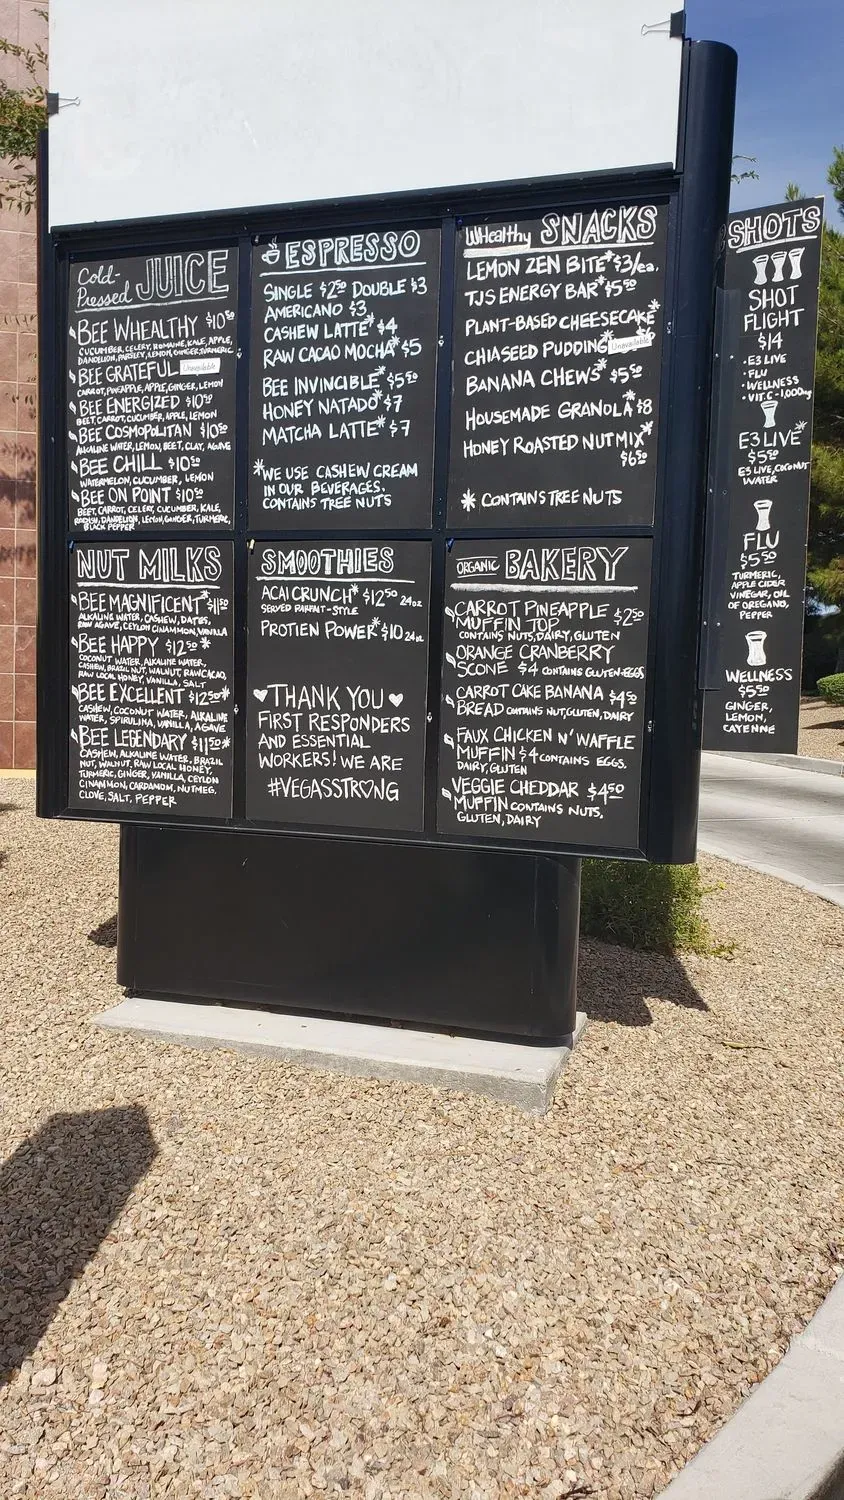 Cold-Pressed JUICE
BEE WHEALTHY $10⁵⁰
CUCUMBER, CELERY, ROMAINE, KALE, APPLE,
DANDELION, PARSLEY, LEMON, GINGER, TURMERIC
BEE GRATEFUL Unavailable
CARROT, PINEAPPLE, APPLE, GINGER, LEMON
BEE ENERGIZED $10⁵⁰
BEET, CARROT, CUCUMBER, APPLE, LEMON
BEE COSMOPOLITAN $10⁵⁰
ALKALINE WATER, LEMON, BEET, CLAY, AGAVE
BEE CHILL $10⁵⁰
WATERMELON, CUCUMBER, LEMON
BEE ON POINT $10⁵⁰
BEET, CARROT, CELERY, CUCUMBER, KALE,
RADISH, DANDELION, LEMON, GINGER, TURMERIC,
BLACK PEPPER
ESPRESSO
SINGLE $2⁵⁰ DOUBLE $3
AMERICANO $3
CASHEW LATTE* $4
RAW CACAO MOCHA* $5
BEE INVINCIBLE* $5⁵⁰
HONEY NATADO* $7
MATCHA LATTE* $7
*WE USE CASHEW CREAM
IN OUR BEVERAGES.
CONTAINS TREE NUTS
WHealthy SNACKS
LEMON ZEN BITE* $3/ea.
TJS ENERGY BAR* $5⁵⁰
PLANT-BASED CHEESECAKE*
CHIASEED PUDDING Unavailable
BANANA CHEWS* $5⁵⁰
HOUSEMADE GRANOLA* $8
HONEY ROASTED NUT MIX*
$6⁵⁰
* CONTAINS TREE NUTS
NUT MILKS
BEE MAGNIFICENT* $11⁵⁰
ALKALINE WATER, CASHEW, DATES,
RAW AGAVE, CEYLON CINAMMON, VANILLA
BEE HAPPY $12⁵⁰*
COCONUT WATER, ALKALINE WATER,
CASHEW, BRAZIL NUT, WALNUT, RAW CACAO,
RAW LOCAL HONEY, VANILLA, SALT
BEE EXCELLENT $12⁵⁰*
CASHEW, COCONUT WATER, ALKALINE
WATER, SPIRULINA, VANILLA, AGAVE
BEE LEGENDARY $11⁵⁰*
CASHEW, ALKALINE WATER, BRAZIL
NUT, WALNUT, RAW LOCAL HONEY,
TURMERIC, GINGER, VANILLA, CEYLON
CINAMMON, CARDAMOM, NUTMEG,
CLOVE, SALT, PEPPER
SMOOTHIES
ACAI CRUNCH* $12⁵⁰ 24oz
SERVED PARFAIT-STYLE
PROTIEN POWER* $10 24oz
THANK YOU
FIRST RESPONDERS
AND ESSENTIAL
WORKERS! WE ARE
#VEGASSTRONG
ORGANIC BAKERY
CARROT PINEAPPLE $2⁵⁰
MUFFIN TOP
CONTAINS NUTS, DAIRY, GLUTEN
ORANGE CRANBERRY
SCONE $4 CONTAINS GLUTEN-EGGS
CARROT CAKE BANANA $4⁵⁰
BREAD CONTAINS NUT, GLUTEN, DAIRY
FAUX CHICKEN N' WAFFLE
MUFFIN $4 CONTAINS EGGS,
DAIRY, GLUTEN
VEGGIE CHEDDAR $4⁵⁰
MUFFIN CONTAINS NUTS,
GLUTEN, DAIRY
SHOTS
SHOT
FLIGHT
$14
• E3 LIVE
• FLU
• WELLNESS
• VIT. C-1,000mg
E3 LIVE*
$5⁵⁰
E3 LIVE, COCONUT
WATER
FLU
$5⁵⁰
TURMERIC,
APPLE CIDER
VINEGAR, OIL
OF OREGANO,
PEPPER
WELLNESS
$5⁵⁰
GINGER,
LEMON,
CAYENNE